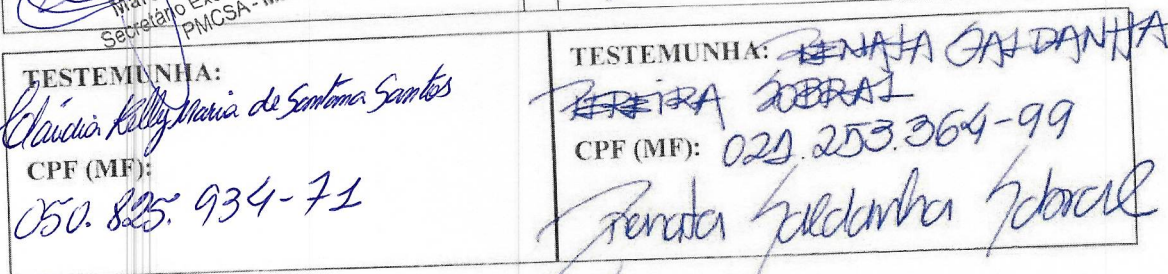 Secretário Ex
PMCSA - M
TESTEMUNHA:
Cláudia Kelly Maria de Santana Santos
CPF (MF):
050. 825. 934-71
TESTEMUNHA: RENATA SALDANHA
PEREIRA SOBRAL
CPF (MF): 021.253.364-99
Renata Saldanha Sobral